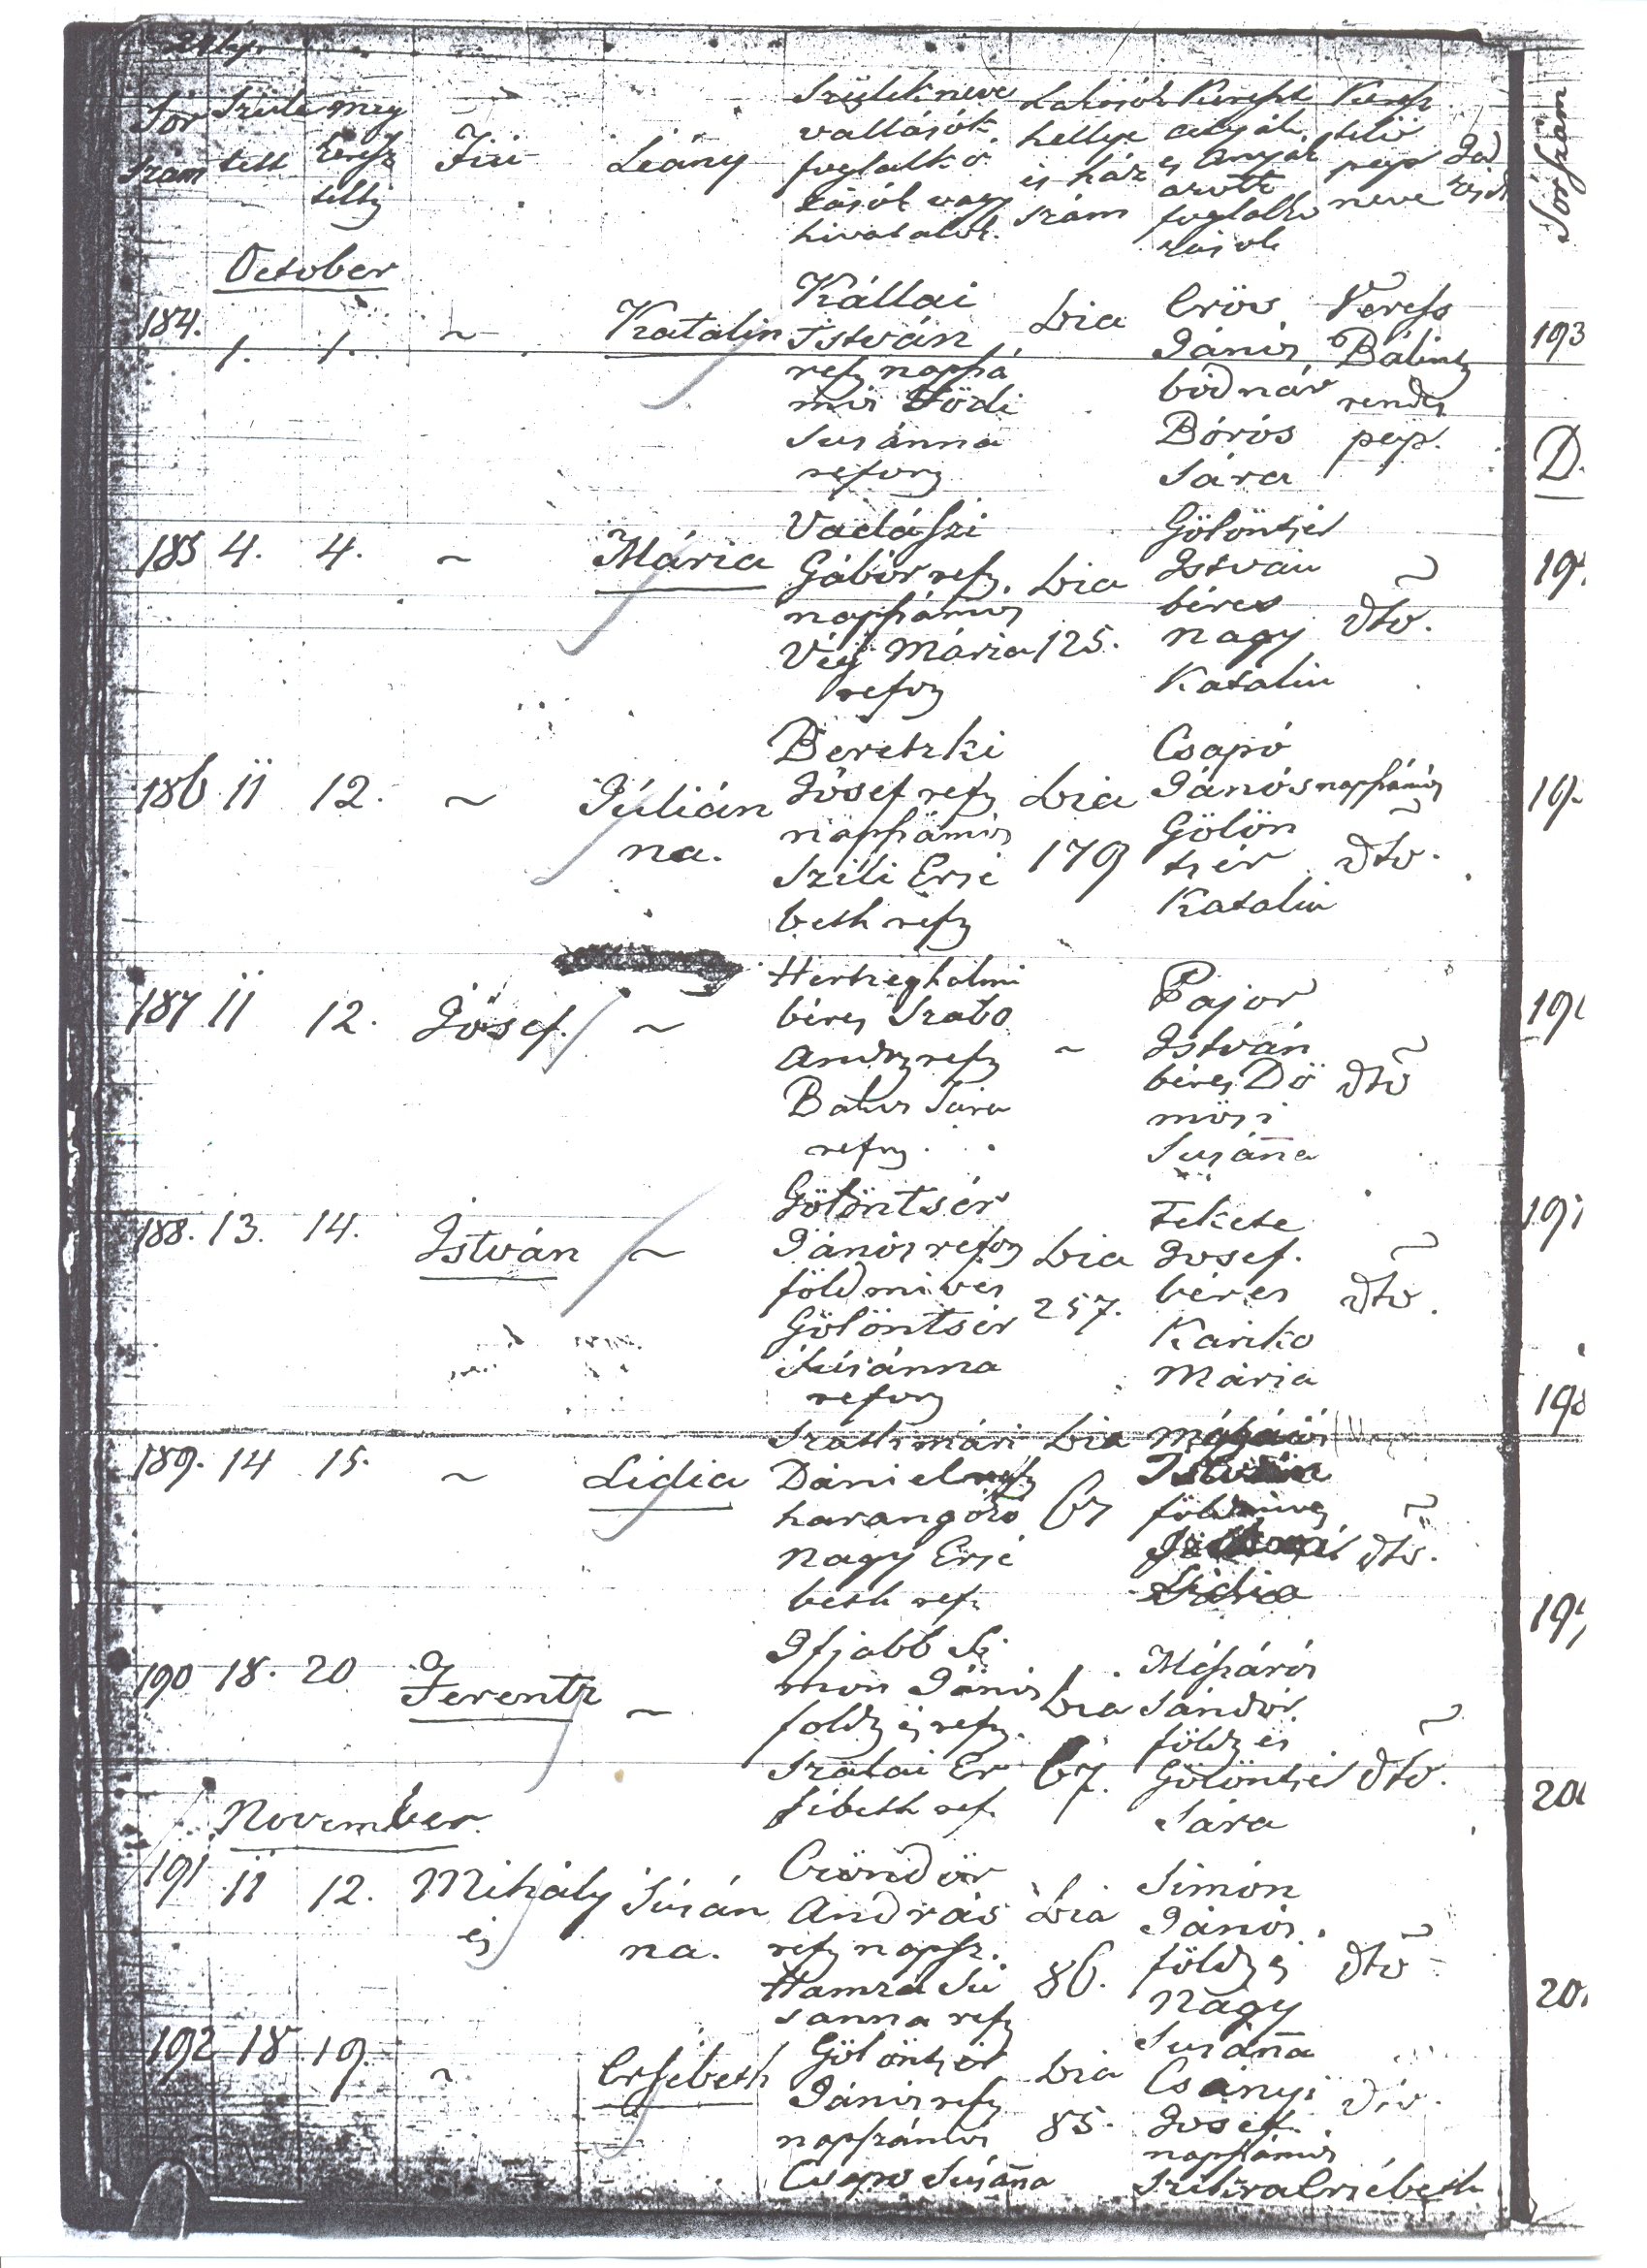 Sor szám
Szüle tett
Meg keresz telt
Fiú
Leány
Szülék neve vallásók foglalkó zásók vagy hivatalok.
Lakások hellye és ház szám
Kereszt atyák és Anyák azok foglalko zások
Keresz telő pap neve
Sor szám
October
184. 1. 1. ~ Katalin
Kállai
István
ref napszá
mos Födi
Susánna
ref
Bia
Erös
János
bodnár
Bórós
Sára
Veress
Bálint
rendes
pap.
193
D.
185 4. 4. ~ Mária
Vadászi
Gábor ref.
napszámos
Vég Mária
ref
Bia
125.
Gölöntsér
István
béres
Nagy
Katalin
dto.
186 11 12. ~ Júlián
na.
Beretzki
Jósef ref
napszámos
Szili Ersé
beth ref
Bia
179
Csapó
János napszámos
Gölön
tsér
Katalin
dto.
187 11 12. Jósef. ~
Hertzeghalmi
béres Szabo
Andr ref
Bators Sára
ref.
~
Pajor
István
béres Dö
mösi
Susána
dto
188. 13. 14. István ~
Gölöntsér
János ref
földmives
Gölöntsér
Susánna
ref
Bia
257.
Fekete
Josef.
béres
Kariko
Mária
dto.
189. 14 15. ~ Lidia
Szathmári
Dániel ref
harangózó
Nagy Ersé
beth ref.
Bia
67
István
Lidia
dto.
190 18. 20 Ferentz ~
Ifjabb Si
mon János
földm és ref.
Szalai Er
sébeth ref.
Bia
67.
Mészáros
Sándor
földm és
Gölöntsér
Sára
dto.
November.
191 11 12. Mihály és
Susán
na.
Csöndör
András
ref napsz.
Hamza Su
sanna ref
Bia
86.
Simon
János.
földm és
Nagy
Susána
dto
192 18 19. ~ Ersébeth
Gölöntsér
János ref
napszámos
Csapo Susána
Bia
85.
Csányi
Josef.
napszámos
Ersébeth
dto.